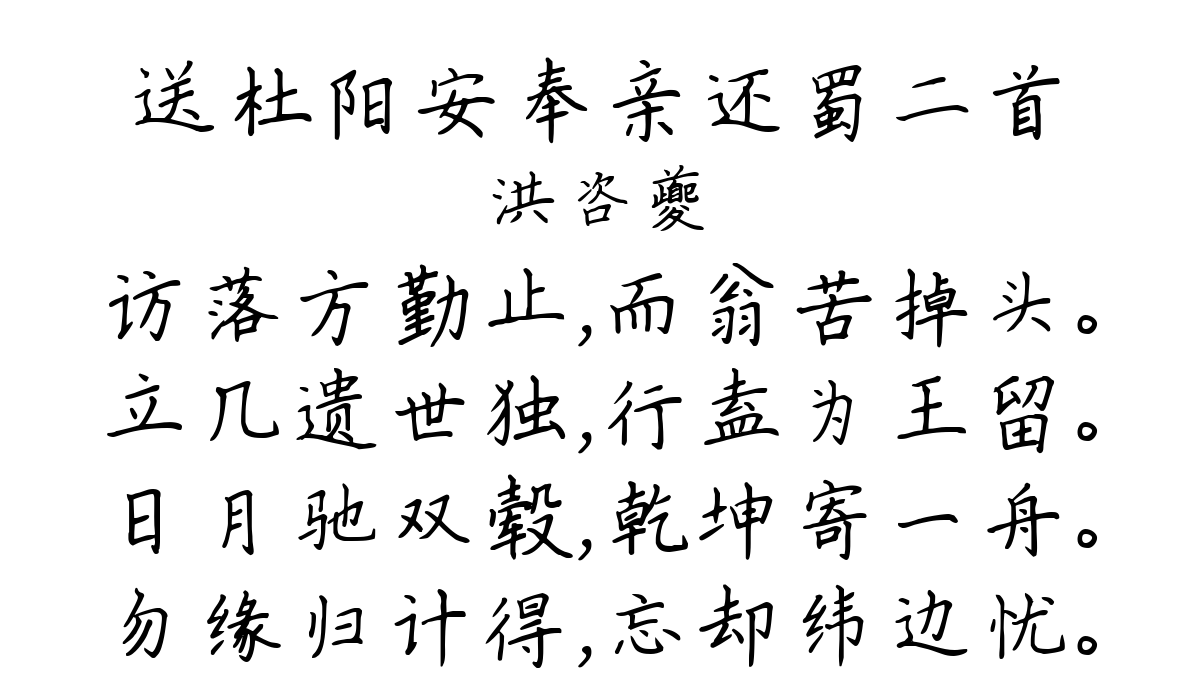 送杜阳安奉亲还蜀二首
洪咨夔
访落方勤止,而翁苦掉头。
立几遗世独,行盍为王留。
日月驰双毂,乾坤寄一舟。
勿缘归计得,忘却纬边忧。